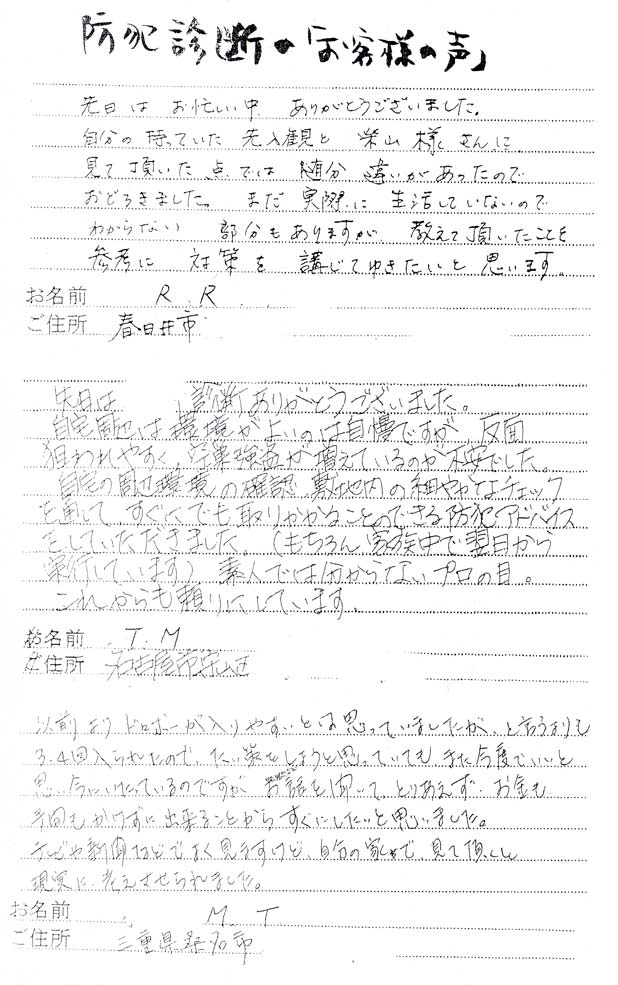 防犯診断の「お客様の声」
先日は お忙しい中 ありがとうございました。
自分の持っていた 先入観と 柴山様さんに
見て頂いた点では 随分 違いがあったので
おどろきました。 まだ 実際に 生活していないので
わからない 部分もありますが 教えて頂いたことを
参考に 対策を 講じてゆきたいと 思います。
お名前 R.R
ご住所 春日井市
先日は 診断ありがとうございました。
自宅周辺は環境がよいのは自慢ですが 反面
狙われやすく 強盗が増えているのが不安でした。
自宅の周辺環境の確認、敷地内の細やかなチェック
を通して、すぐにでも取りかかることのできる防犯アドバイス
をしていただきました。(もちろん 家族中で翌日から
実行しています) 素人では分からないプロの目。
これからも頼りにしています。
お名前 T.M
ご住所 名古屋市守山区
以前より ドロボーが入りやすいとは思っていましたが、と言うよりも
3.4回入られたので、たい策をしようと思っていても、また今度でいいと
思い今にいたっているのですが お話を聞いて とりあえず お金も
手間もかけずに出来ることから すぐにしたいと思いました。
テレビや新聞などでよく見ますけど、自分の家まで、見て頂くと
現実に 考えさせられました。
お名前 M T
ご住所 三重県桑名市